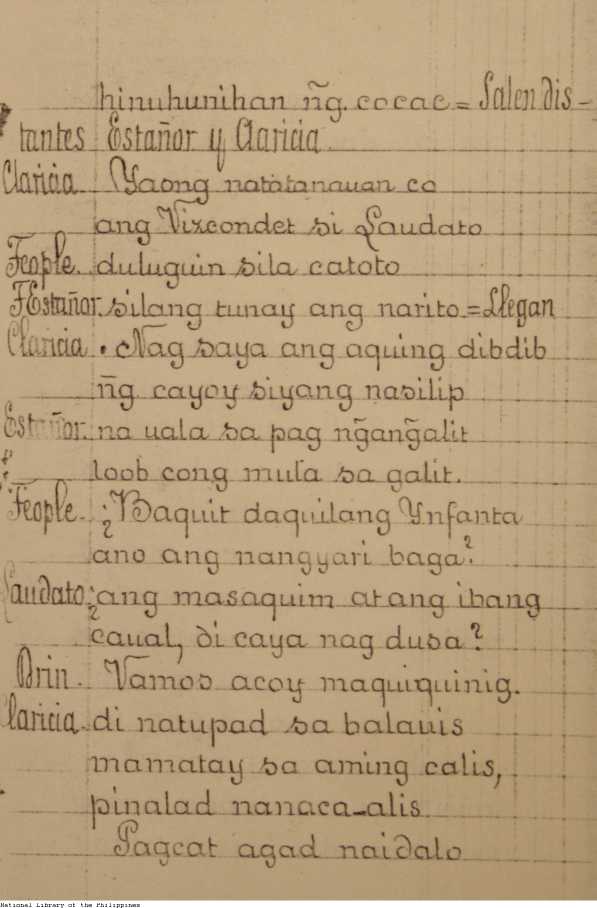 hinuhunihan ñg. cocac = Salen dis-
tantes Estañor y Claricia.
Claricia. Yaong natatanauan co
ang Vizcondet si Laudato
Feople. duluguin sila catoto
Estañor. silang tunay ang narito.=Llegan
Claricia. Nag saya ang aquing dibdib
ñg. cayoy siyang nasilip
Estañor. na uala sa pag ng̃ang̃alit
loob cong mula sa galit.
Feople. ¿Baquit daquilang Ynfanta
ano ang nangyari baga?
Laudato. ¿ang masaquim at ang ibang
caual, di caya nag dusa?
Brin. Vamos acoy maquiquinig.
Claricia. di natupad sa balauis
mamatay sa aming calis,
pinalad nanaca-alis.
Pagcat agad naidalo
National Library of the Philippines